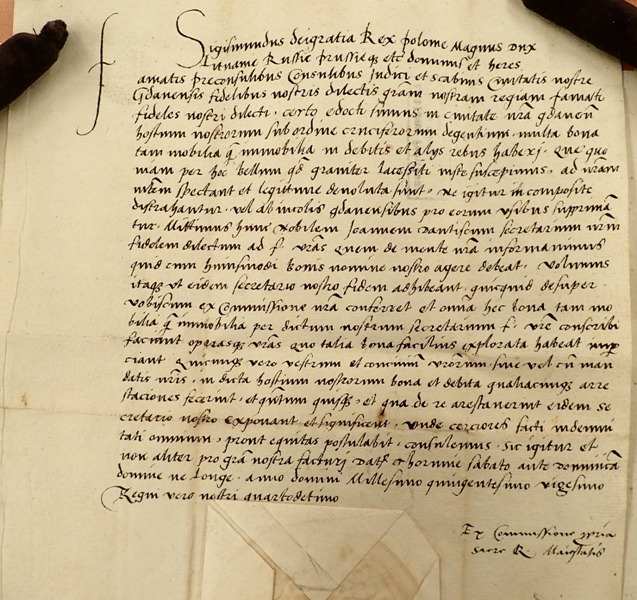 Sigismundus dei gratia Rex polonie Magnus Dux
Lituanie Russie prussieq etc dominus et heres
amatis preconsulibus Consulibus Iudici et scabinis Civitatis nostre
Gdanensis fidelibus nostris dilectis gram nostram regiam famati
fideles nostri dilecti. certo edocti sumus in civitate nra gdanen
hostium nostrorum sub ordine cruciferorum degentium. multa bona
tam mobilia q immobilia in debitis et alys rebus haberj. que quo
niam per hoc bellum qd graviter lacessiti iuste suscepimus, ad nram
spectant et legittime devoluta sunt. Ne igitur in composite
distrahantur. vel ab incolis gdanensibus pro eorum usibus supprima
tur. Misimus hunc Nobilem Joannem Dantiscum secretarium nrm
fidelem dilectum ad f. vras quem de mente nra informavimus
quid cum huiusmodi bonis nomine nostro agere debeat. Volumus
itaq ut eidem secretario nostro fidem adhibeant, quicquid desuper
vobiscum ex Commissione nra conferret et omnia hec bona tam mo
bilia q immobilia per dictum nostrum secretarium f. vre conscribi
faciant operasq vras quo talia bona facilius explorata habeat
ciant quicunq vero vestrum et concivium vrorum sive vel cu man
datis nris, in dicta hostium nostrorum bona et debita qualiacunq arre
stationes fecerint, et quotum quisq, et qua de re arestaverint eidem se
cretario nostro exponant et significent. unde cerciores facti indemni
tati omnium, prout equitas postulabit, consulemus. sic igitur et
non aliter pro gra nostra facturi Dat Thorunie sabato ante Dominica
domine ne longe. anno domini Millesimo quingentesimo vigesimo
Regni vero nostri quartodecimo
Ex Commissione ppria
sacre R. Maiestatis